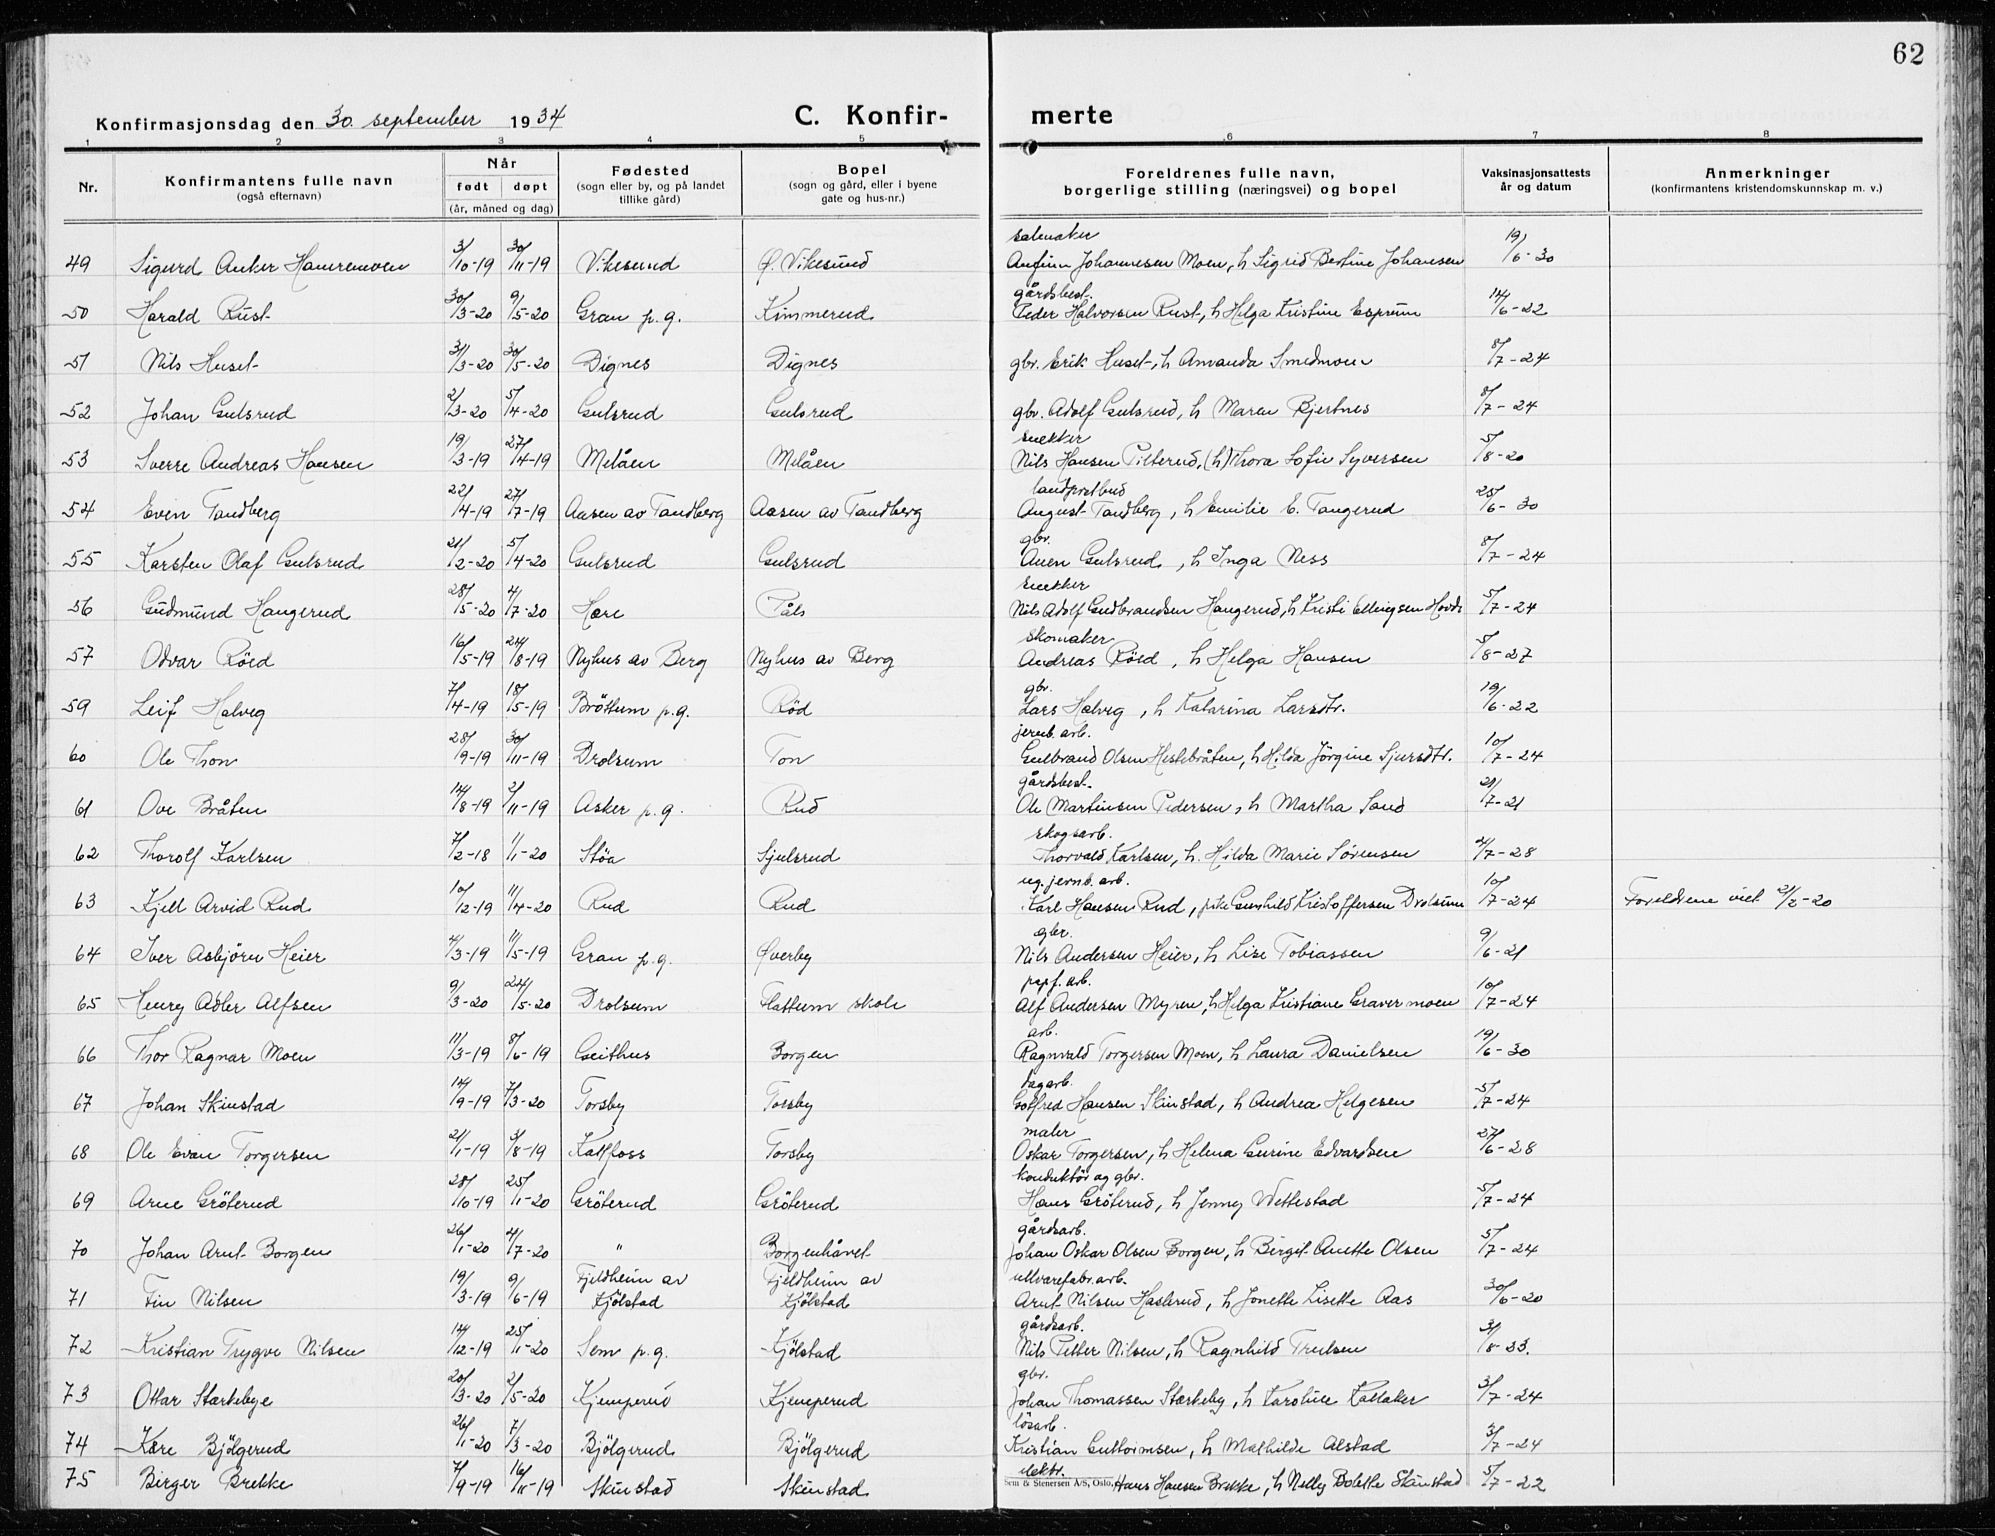 62
Konfirmasjonsdag den 30. september 1934 C. Konfir- merte
1 2 3 4 5 6 7 8
Nr. Konfirmantens fulle navn (også efternavn) Når født døpt (år, måned og dag) Fødested (sogn eller by, og på landet tillike gård) Bopel (sogn og gård, eller i byene gate og hus-nr.) Foreldrenes fulle navn, borgerlige stilling (næringsvei) og bopel Vaksinasjonsattests år og datum Anmerkninger (konfirmantens kristendomskunnskap m. v.)
salmaker
49 Sigurd Anker Hamremoen 3/10-19 30/11-19 Vikesund Ø. Vikesund Anfinn Johannesen Moen, h Sigrid Bertine Johansen 19/6-30
gårdsbest.
50 Harald Rust 30/3-20 9/5-20 Gran p.g. Kimmerud Peder Halvorsen Rust, h Helga Kristine Esprum 14/6-22
51 Nils Huset 31/3-20 30/5-20 Dignes Dignes gbr. Erik Huset, h Amanda Smedmoen 8/7-24
52 Johan Gulsrud 2/3-20 5/4-20 Gulsrud Gulsrud gbr. Adolf Gulsrud, h Maren Bjertnes 8/7-24
snekker
53 Sverre Andreas Hansen 19/3-19 27/4-19 Melåen Melåen Nils Hansen Pilterud, (h) Thora Sofie Syversen 5/8-20
landpostbud
54 Even Tandberg 22/4-19 27/7-19 Aasen av Tandberg Aasen av Tandberg August Tandberg, h Emilie E. Tangerud 25/6-30
gbr.
55 Karsten Olaf Gulsrud 21/2-20 5/4-20 Gulsrud Gulsrud Auen Gulsrud, h Inga Ness 8/7-24
snekker
56 Gudmund Haugerud 28/5-20 4/7-20 Hære Påls Nils Adolf Gudbrandsen Haugerud, h Kristi Ellingsen Hovde 5/7-24
skomaker
57 Odvar Röed 16/5-19 24/8-19 Nyhus av Berg Nyhus av Berg Andreas Röed, h Helga Hansen 5/8-27
gbr.
59 Leif Halveg 7/4-19 18/5-19 Bröttum p.g. Röd Lars Halveg, h Katarina Larsdtr. 19/6-22
jernb. arb.
60 Ole Thon 28/9-19 30/11-19 Drolsum Ton Gulbrand Olsen Hestebråten, h Hilda Jörgine Sjursdtr. 10/7-24
gårdsbest.
61 Ove Bråten 14/8-19 2/11-19 Asker p.g. Rud Ole Martinsen Pedersen, h Martha Sand 21/7-21
skogsarb.
62 Thorolf Karlsen 7/2-18 1/1-20 Stöa Sjulsrud Thorvald Karlsen, h. Hilda Marie Sörensen 2/7-28
ug. jernb. arb.
63 Kjell Arvid Rud 10/12-19 11/4-20 Rud Rud Karl Hansen Rud, pike Gunhild Kristoffersen Drolsum 10/7-24 Foreldrene viet 21/2-20
gbr.
64 Iver Asbjörn Heier 4/3-19 11/5-19 Gran p.g. Øverby Nils Andersen Heier, h Lise Tobiassen 9/6-21
papf. arb.
65 Henry Adler Alfsen 9/3-20 24/5-20 Drolsum Flattum skole Alf Andersen Myren, h Helga Kristiane Gravermoen 10/7-24
arb.
66 Thor Ragnar Moen 11/3-19 8/6-19 Geithus Borgen Ragnvald Torgersen Moen, h Laura Danielsen 19/6-30
dagarb.
67 Johan Skinstad 14/9-19 7/3-20 Torsby Torsby Golfred Hansen Skinstad, h Andrea Helgesen 5/7-24
maler
68 Ole Evan Torgersen 21/1-19 3/8-19 Katfoss Torsby Oskar Torgersen, h Helena Gurine Edvardsen 27/6-28
konduktör og gbr.
69 Arne Gröterud 28/10-19 25/1-20 Gröterud Gröterud Hans Gröterud, h Jenny Wettestad 5/7-24
gårdsarb.
70 Johan Arnt Borgen 26/1-20 4/7-20 " Borgenhåvet Johan Oskar Olsen Borgen, h Birgit Anette Olsen 5/7-24
ullvarefabr. arb.
71 Fin Nilsen 19/3-19 9/6-19 Fjeldheim av Kjölstad Fjeldheim av Kjölstad Arnt Nilsen Haslerud, h Jonette Lisette Aas 30/6-20
gårdsarb.
72 Kristian Trygve Nilsen 14/12-19 25/1-20 Sem p.g. Kjölstad Nils Petter Nilsen, h Ragnhild Trulsen 31/8-33.
gbr.
73 Ottar Stærkebye 20/3-20 2/5-20 Kjemperud Kjemperud Johan Thomassen Stærkeby, h Karoline Kallaker 3/7-24
lösarb.
74 Kåre Bjölgerud 26/1-20 7/3-20 Bjölgerud Bjölgerud Kristian Guttormsen, h Mathilde Alstad 3/7-24
elektr.
75 Birger Brekke 7/9-19 16/11-19 Skinstad Skinstad Hans Hansen Brekke, h Nelly Bolette Skinstad 5/7-22
Sem & Stenersen A/S, Oslo.